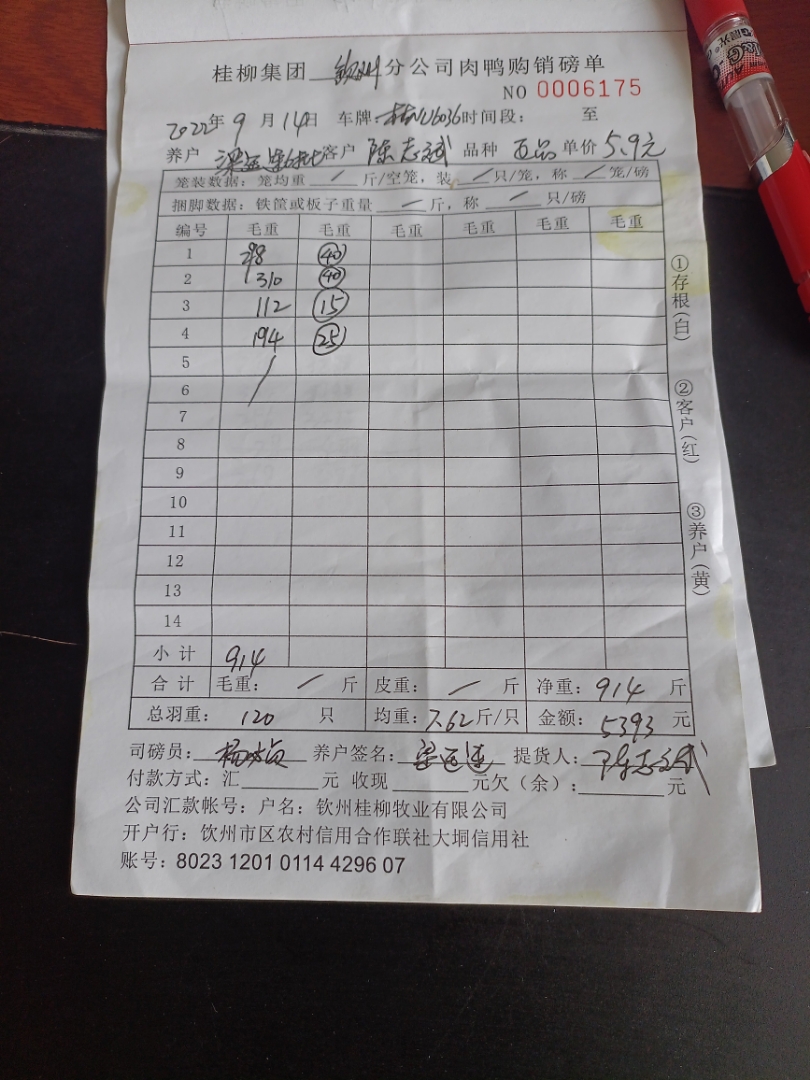 桂柳集团 钦州 分公司肉鸭购销磅单
NO 0006175
2022年9月14日 车牌: 时间段: 至
养户 客户 陈志斌 品种 正品 单价 5.9元
笼装数据: 笼均重 / 斤/空笼, 装 / 只/笼, 称 / 笼/磅
捆脚数据: 铁筐或板子重量 / 斤, 称 / 只/磅
编号 毛重 毛重 毛重 毛重 毛重 毛重
1 298 40
2 310 40
3 112 15
4 194 25
5
6
7
8
9
10
11
12
13
14
小计 914
合计 毛重: / 斤 皮重: / 斤 净重: 914 斤
总羽重: 120 只 均重: 7.62 斤/只 金额: 5393 元
司磅员: 养户签名: 提货人: 陈志斌
付款方式: 汇 元 收现 元欠（余）: 元
公司汇款帐号: 户名: 钦州桂柳牧业有限公司
开户行: 钦州市区农村信用合作联社大垌信用社
账号: 8023 1201 0114 4296 07
①存根(白)
②客户(红)
③养户(黄)